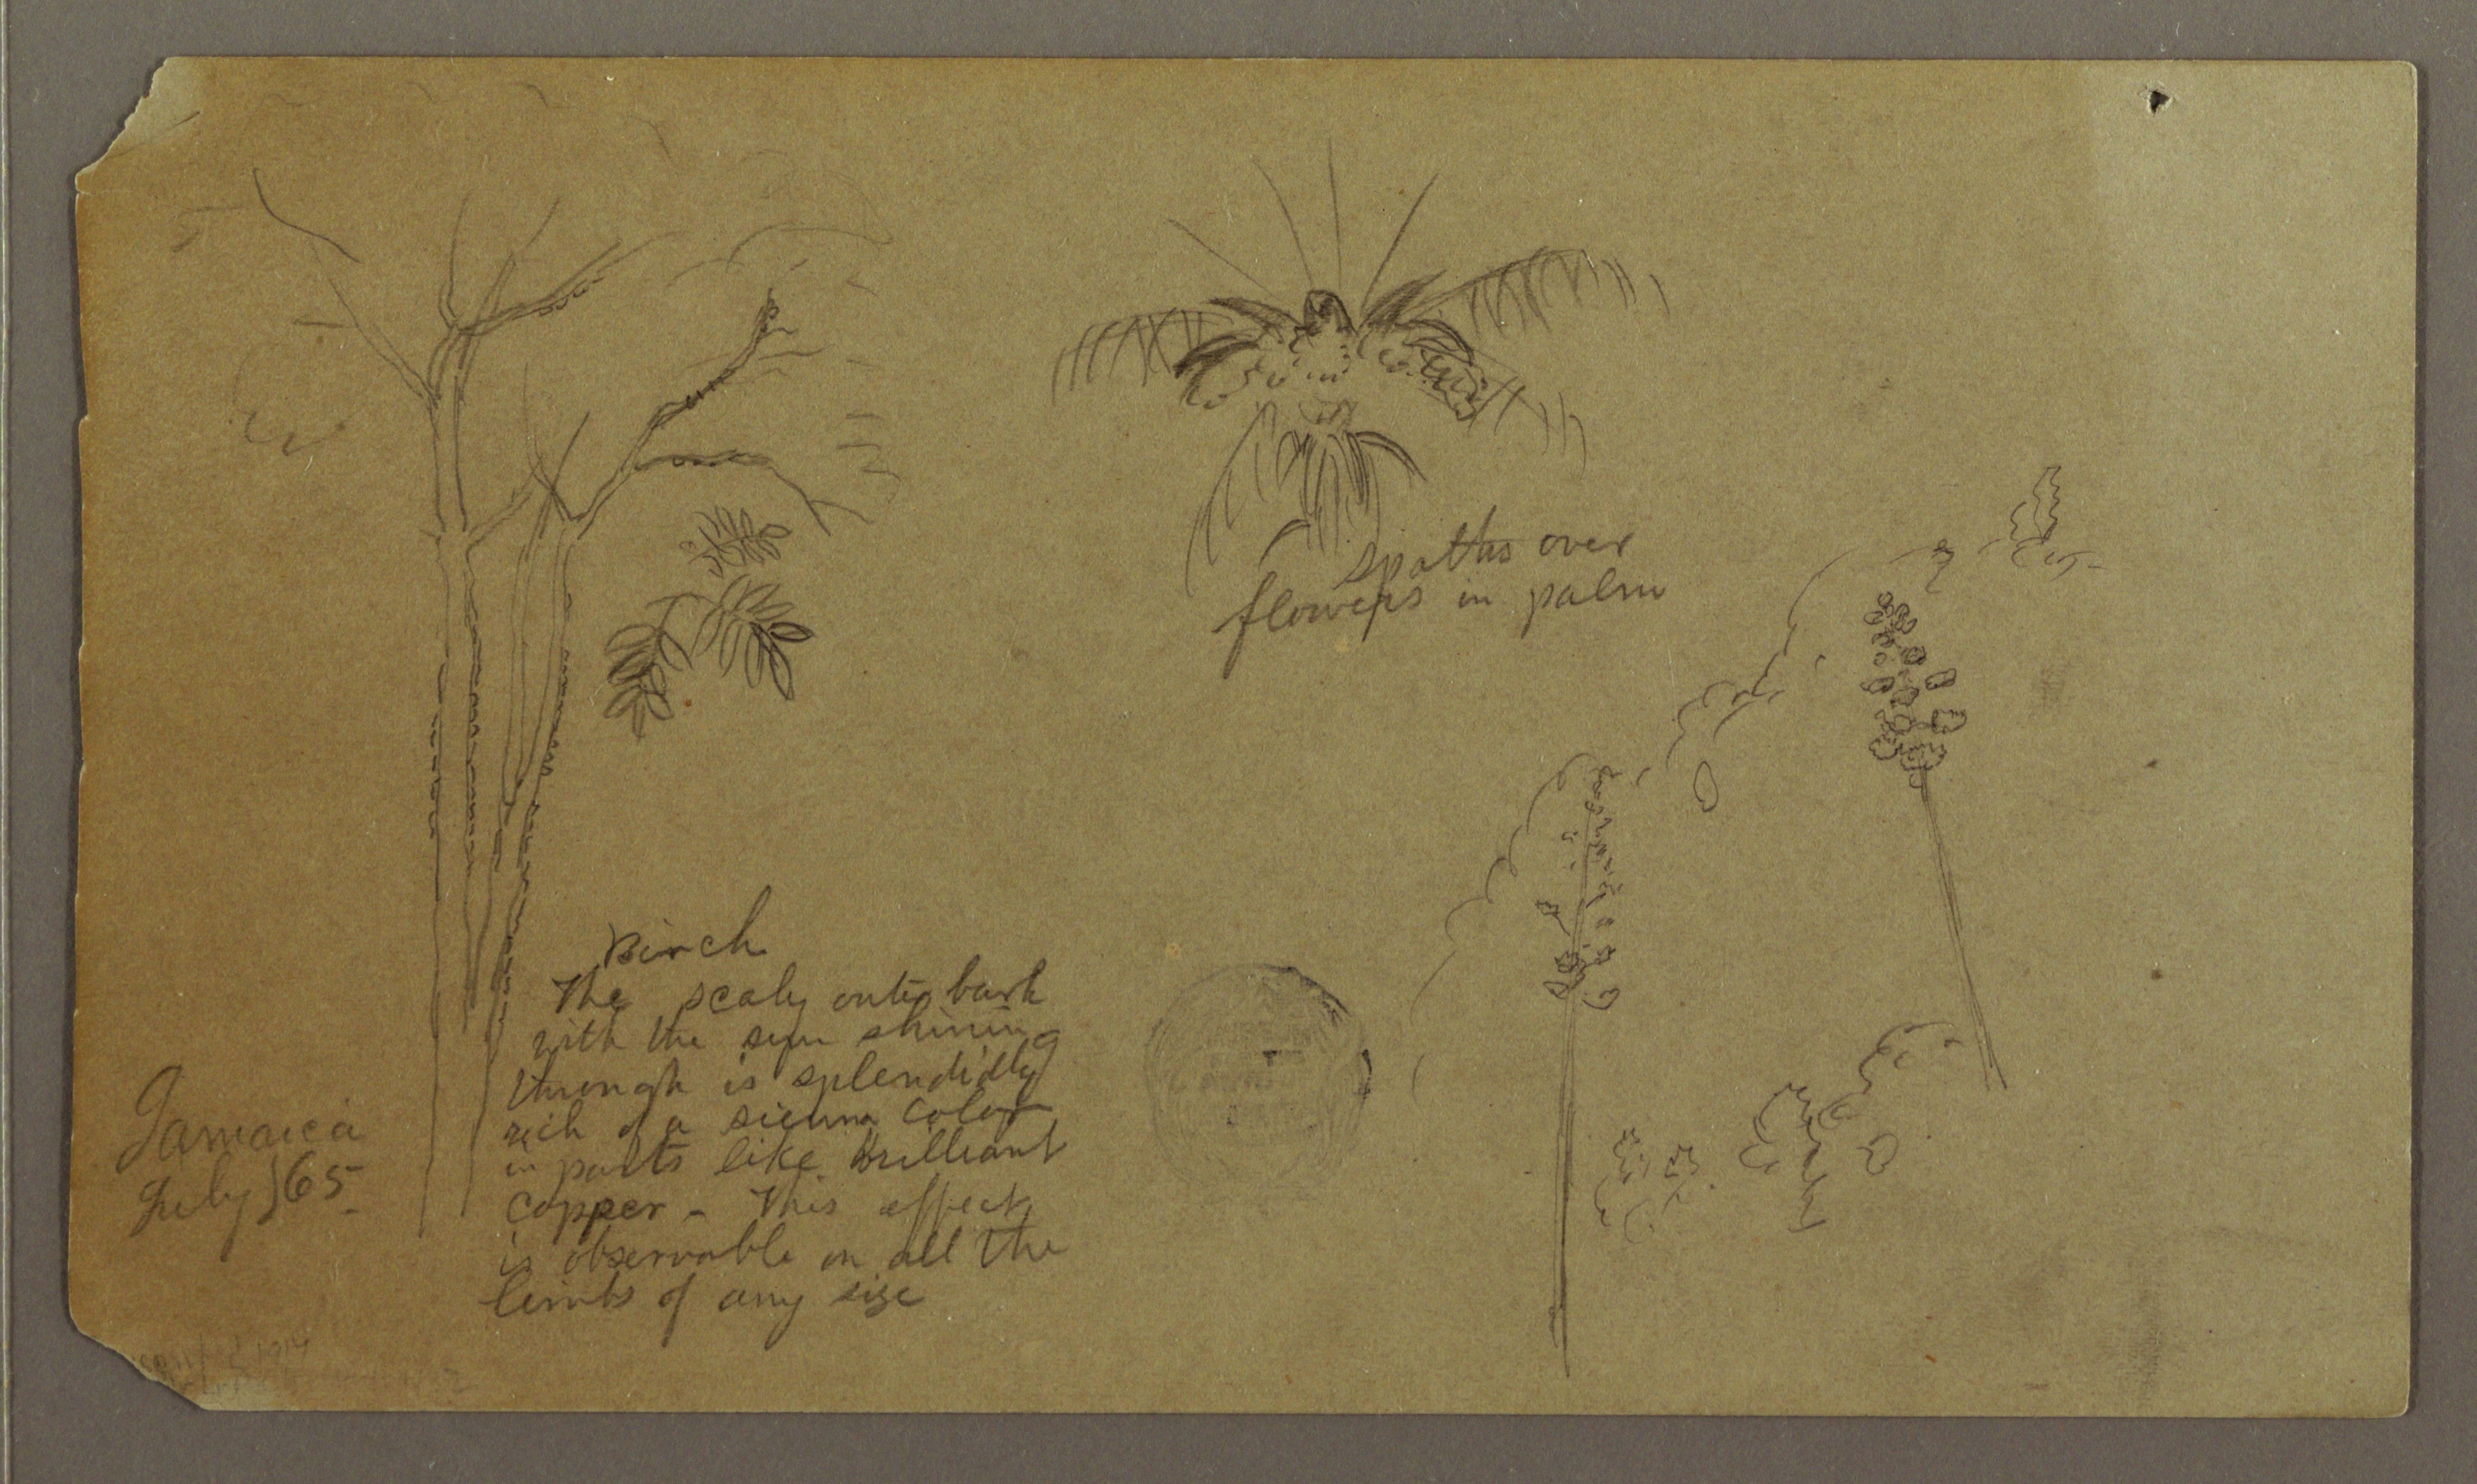 spaths over
flowers in palm
Birch
The scaly outer bark
with the sun shining
through is splendidly
rich of a sienna color
in parts like brilliant
copper - This effect
is observable on all the
limbs of any size
Jamaica
July 65-